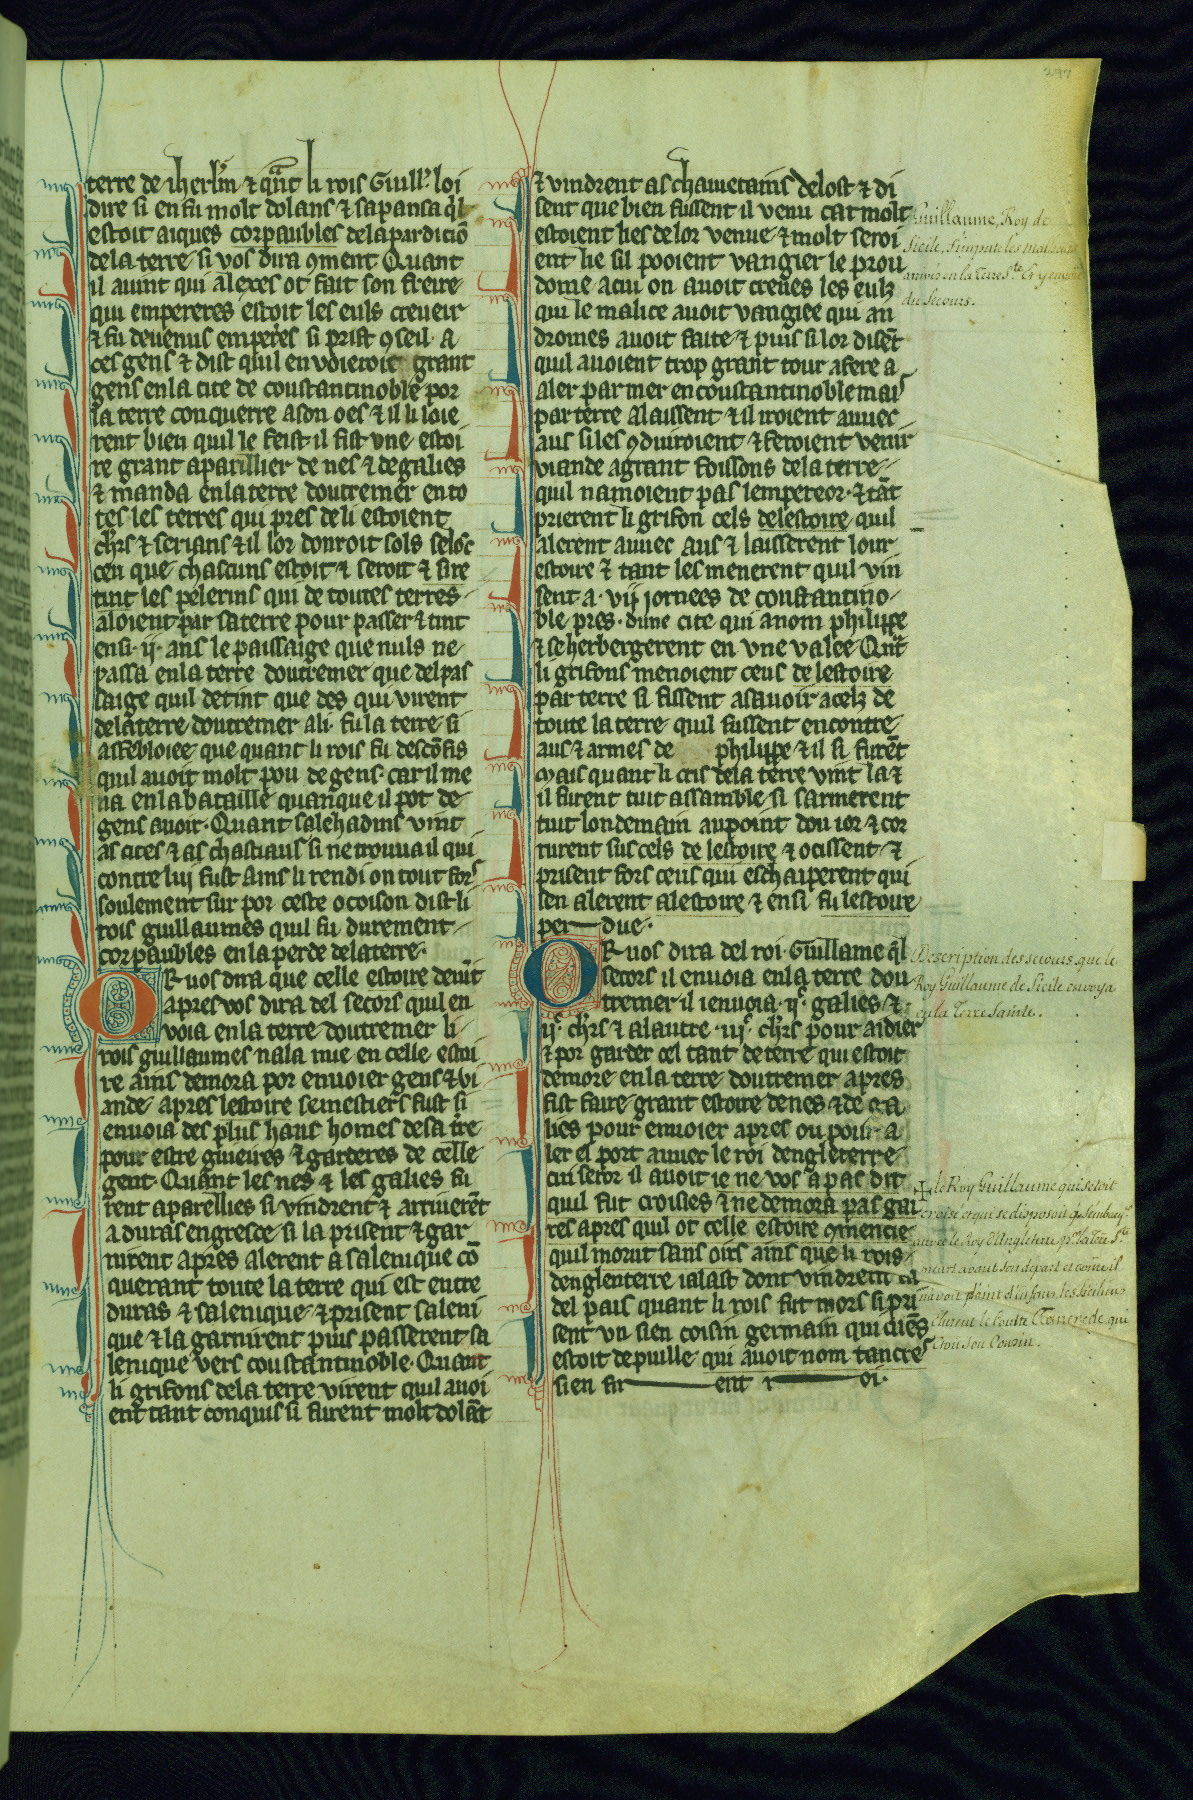 297
terre de iherlm̄ ⁊ qn̄t li rois Guill' loi
dire si en fu molt dolans ⁊ sapansa q̄l
estoit aiques corpaubles de la pardiciō
de la terre si vos dira ꝯment Quant
il auint qui alexes ot fait son freire
qui empereres estoit les euls creueir
⁊ fu deuenus emperes si prist ꝯseil a
ces gens ⁊ dist quil en voieroit grant
gens en la cite de coustantinoble por
la terre conquerre a son oes ⁊ il li loie
rent bien quil le feist il fist vne estoi
re grant aparillier de nes ⁊ de galies
⁊ manda en la terre doutremer en to
tes les terres qui pres de li estoient
chrs ⁊ serians ⁊ il lor donroit sols selōc
ceu que chascuns estoit ⁊ seroit ⁊ sire
tint les pelerins qui de toutes terres
aloient par sa terre pour passer ⁊ tint
ensi .ij. ans le paissaige que nuls ne
passa en la terre doutremer que del pas
saige quil detint que des qui virent
de la terre doutremer ali fu la terre si
afrebloiee que quant li rois fu descōfis
quil auoit molt pou de gens car il me
na en la bataille quanque il pot de
gens auoir. Quant salehadins vint
as cites ⁊ as chastiaus si ne trouua il qui
contre luj fust Ains li rendi on tout fors
soulement sur por ceste ocoison dist li
rois guillaumes quil fu durement
corpaubles en la perde de la terre.
OR uos dira que celle estoire deuīt
apres vos dira del secors quil en
voia en la terre doutremer li
rois guillaumes nala mie en celle estoi
re ains demora por enuoier gens ⁊ vi
ande apres lestoire se mestiers fust si
enuoia des plus haus homes de sa tre
pour estre guieires ⁊ garderes de celle
gent Quant les nes ⁊ les galies fu
rent aparellies si vindrent ⁊ arriuerēt
a duras en gresce si la prisent ⁊ gar
nirent apres alerent a salenique cō
querant toute la terre qui est entre
duras ⁊ salenique ⁊ prisent saleni
que ⁊ la garnirent puis passerent sa
lenique vers coustantinoble. Quant
li grifons de la terre virent quil auoi
ent tant conquis si furent molt dolāt
⁊ vindrent as chauetains de lost ⁊ di
sent que bien fussent il venu car molt
estoient lies de lor venue ⁊ molt seroi
ent lie sil pooient vangier le prou
dome a cui on auoit creues les eulz
qui le malice auoit vangiee qui an
dromes auoit faite ⁊ puis si lor disēt
quil auoient trop grant tour a fere a
aler par mer en coustantinoble mais
par terre alaissent ⁊ il iroient auuec
aus si les ꝯduiroient ⁊ feroient venir
viande a grant foissons de la terre
quil namoient pas lempereor. ⁊ tāt
prierent li grifon cels de lestoire quil
alerent auuec aus ⁊ laisserent lour
estoire ⁊ tant les menerent quil vin
sent a .vij. iornees de constantino
ble pres. dune cite qui a nom philippe
⁊ se herbergerent en vne valee Qn̄t
li grifons menoient ceus de lestoire
par terre si fissent asauoir a celz de
toute la terre quil fussent encontre
aus ⁊ armes de philippe ⁊ il si furēt
Mais quant li cris de la terre vint la ⁊
il furent tuit assamble si sarmerent
tuit londemain au point dou ior ⁊ cor
rurent sus cels de lestoire ⁊ ocissent ⁊
prisent fors ceus qui eschaiperent qui
sen alerent a lestoire ⁊ ensi fu lestoire
per due.
OR uos dira del roi Guillame q̄l
secors il enuoia en la terre dou
tremer il i enuoia .ijc. galies ⁊
ijc. chrs ⁊ a lautre .iijc. chrs pour aidier
⁊ por garder cel tant de terre qui estoit
demore en la terre doutremer apres
fist faire grant estoire de nes ⁊ de ga
lies pour enuoier apres ou pour a
ler el port auuec le roi dengleterre
cui seror il auoit ie ne vos a pas dit
quil fut croisies ⁊ ne demora pas gai
res apres quil ot celle estoire ꝯmencie
quil morut sans oirs ains que li rois
denglenterre ialast dont vindrent ca
del pais quant li rois fut mors si pri
sent vn sien coisin germain qui cuēs
estoit de puille qui auoit nom tancres
si en fir ent r oi.
Guillaume, Roy de
Sicile, s'impute les malheurs
arrivés en la Terre Ste. et y envoye
du secours.
Description des secours que le
Roy Guillaume de Sicile envoya
en la Terre Sainte.
le Roy Guillaume qui s'etoit
croisé et qui se disposoit a
avec le Roy d'Angleterre
mourt avant son départ et comme il
n'avoit point d'enfans, les Siciliens
élurent le Comte Tancrede qui
etoit son Cousin.